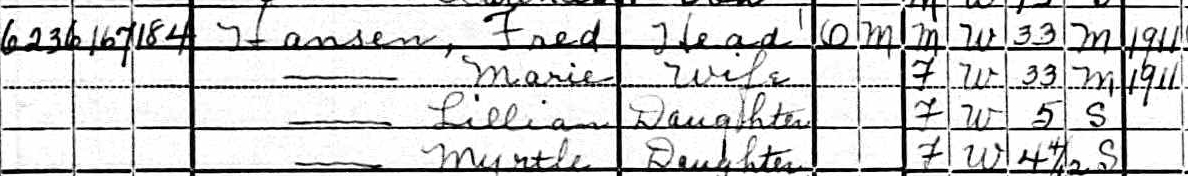 6236 167 184 Hansen, Fred Head 1 O M M W 33 M 1911
—— Marie Wife F W 33 M 1911
—— Lillian Daughter F W 5 S
—— Myrtle Daughter F W 4 4/12 S